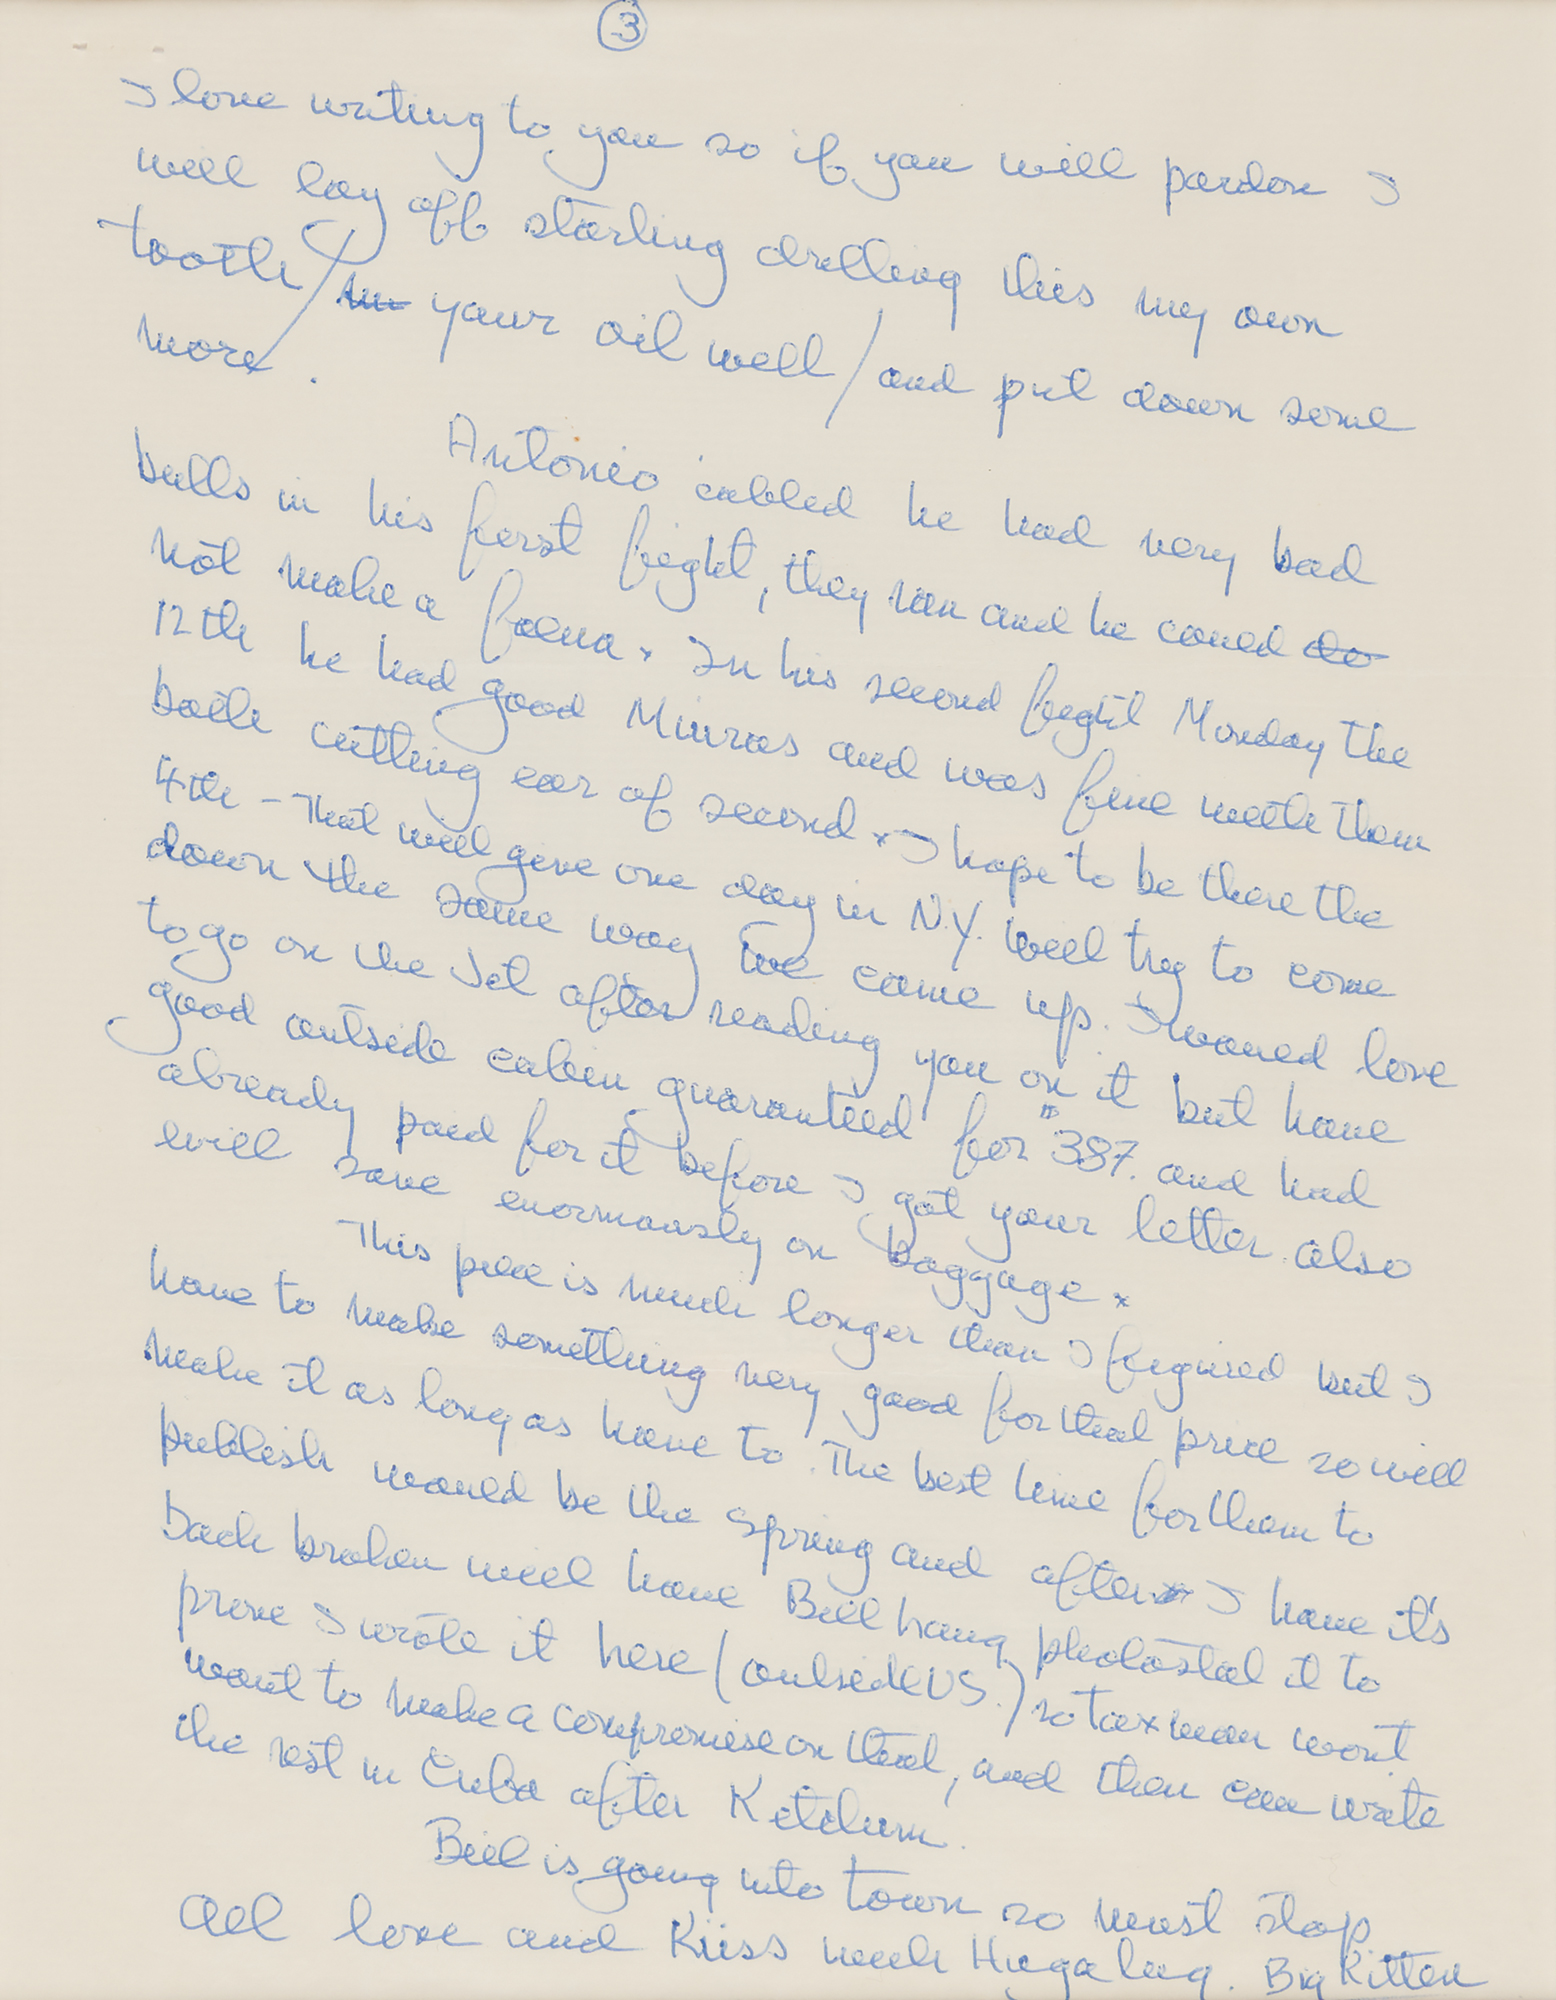 3
I love writing to you so if you will pardon I
will lay off starting drilling this my own
tooth / in your oil well / and put down some
more.
Antonio cabled he had very bad
bulls in his first fight, they ran and he could do
not make a faena x In his second fight Monday the
12th he had good Miuras and was fine with them
both cutting ear of second x I hope to be there the
4th - That will give one day in N.Y. Will try to come
down the same way we came up. I would love
to go on the Jet after reading you on it but have
good outside cabin guaranteed for "387. and had
already paid for it before I got your letter also
will save enormously on baggage x
This piece is much longer than I figured but I
have to make something very good for that price so will
make it as long as have to. The best time for them to
publish would be the spring and after I have it's
back broken will have Bill have photostat it to
prove I wrote it here (outside US.) so tax man wont
want to make a compromise on that, and then can write
the rest in Cuba after Ketchum.
Bill is going into town so must stop
All love and Kiss much Huga lug. Big Kitten